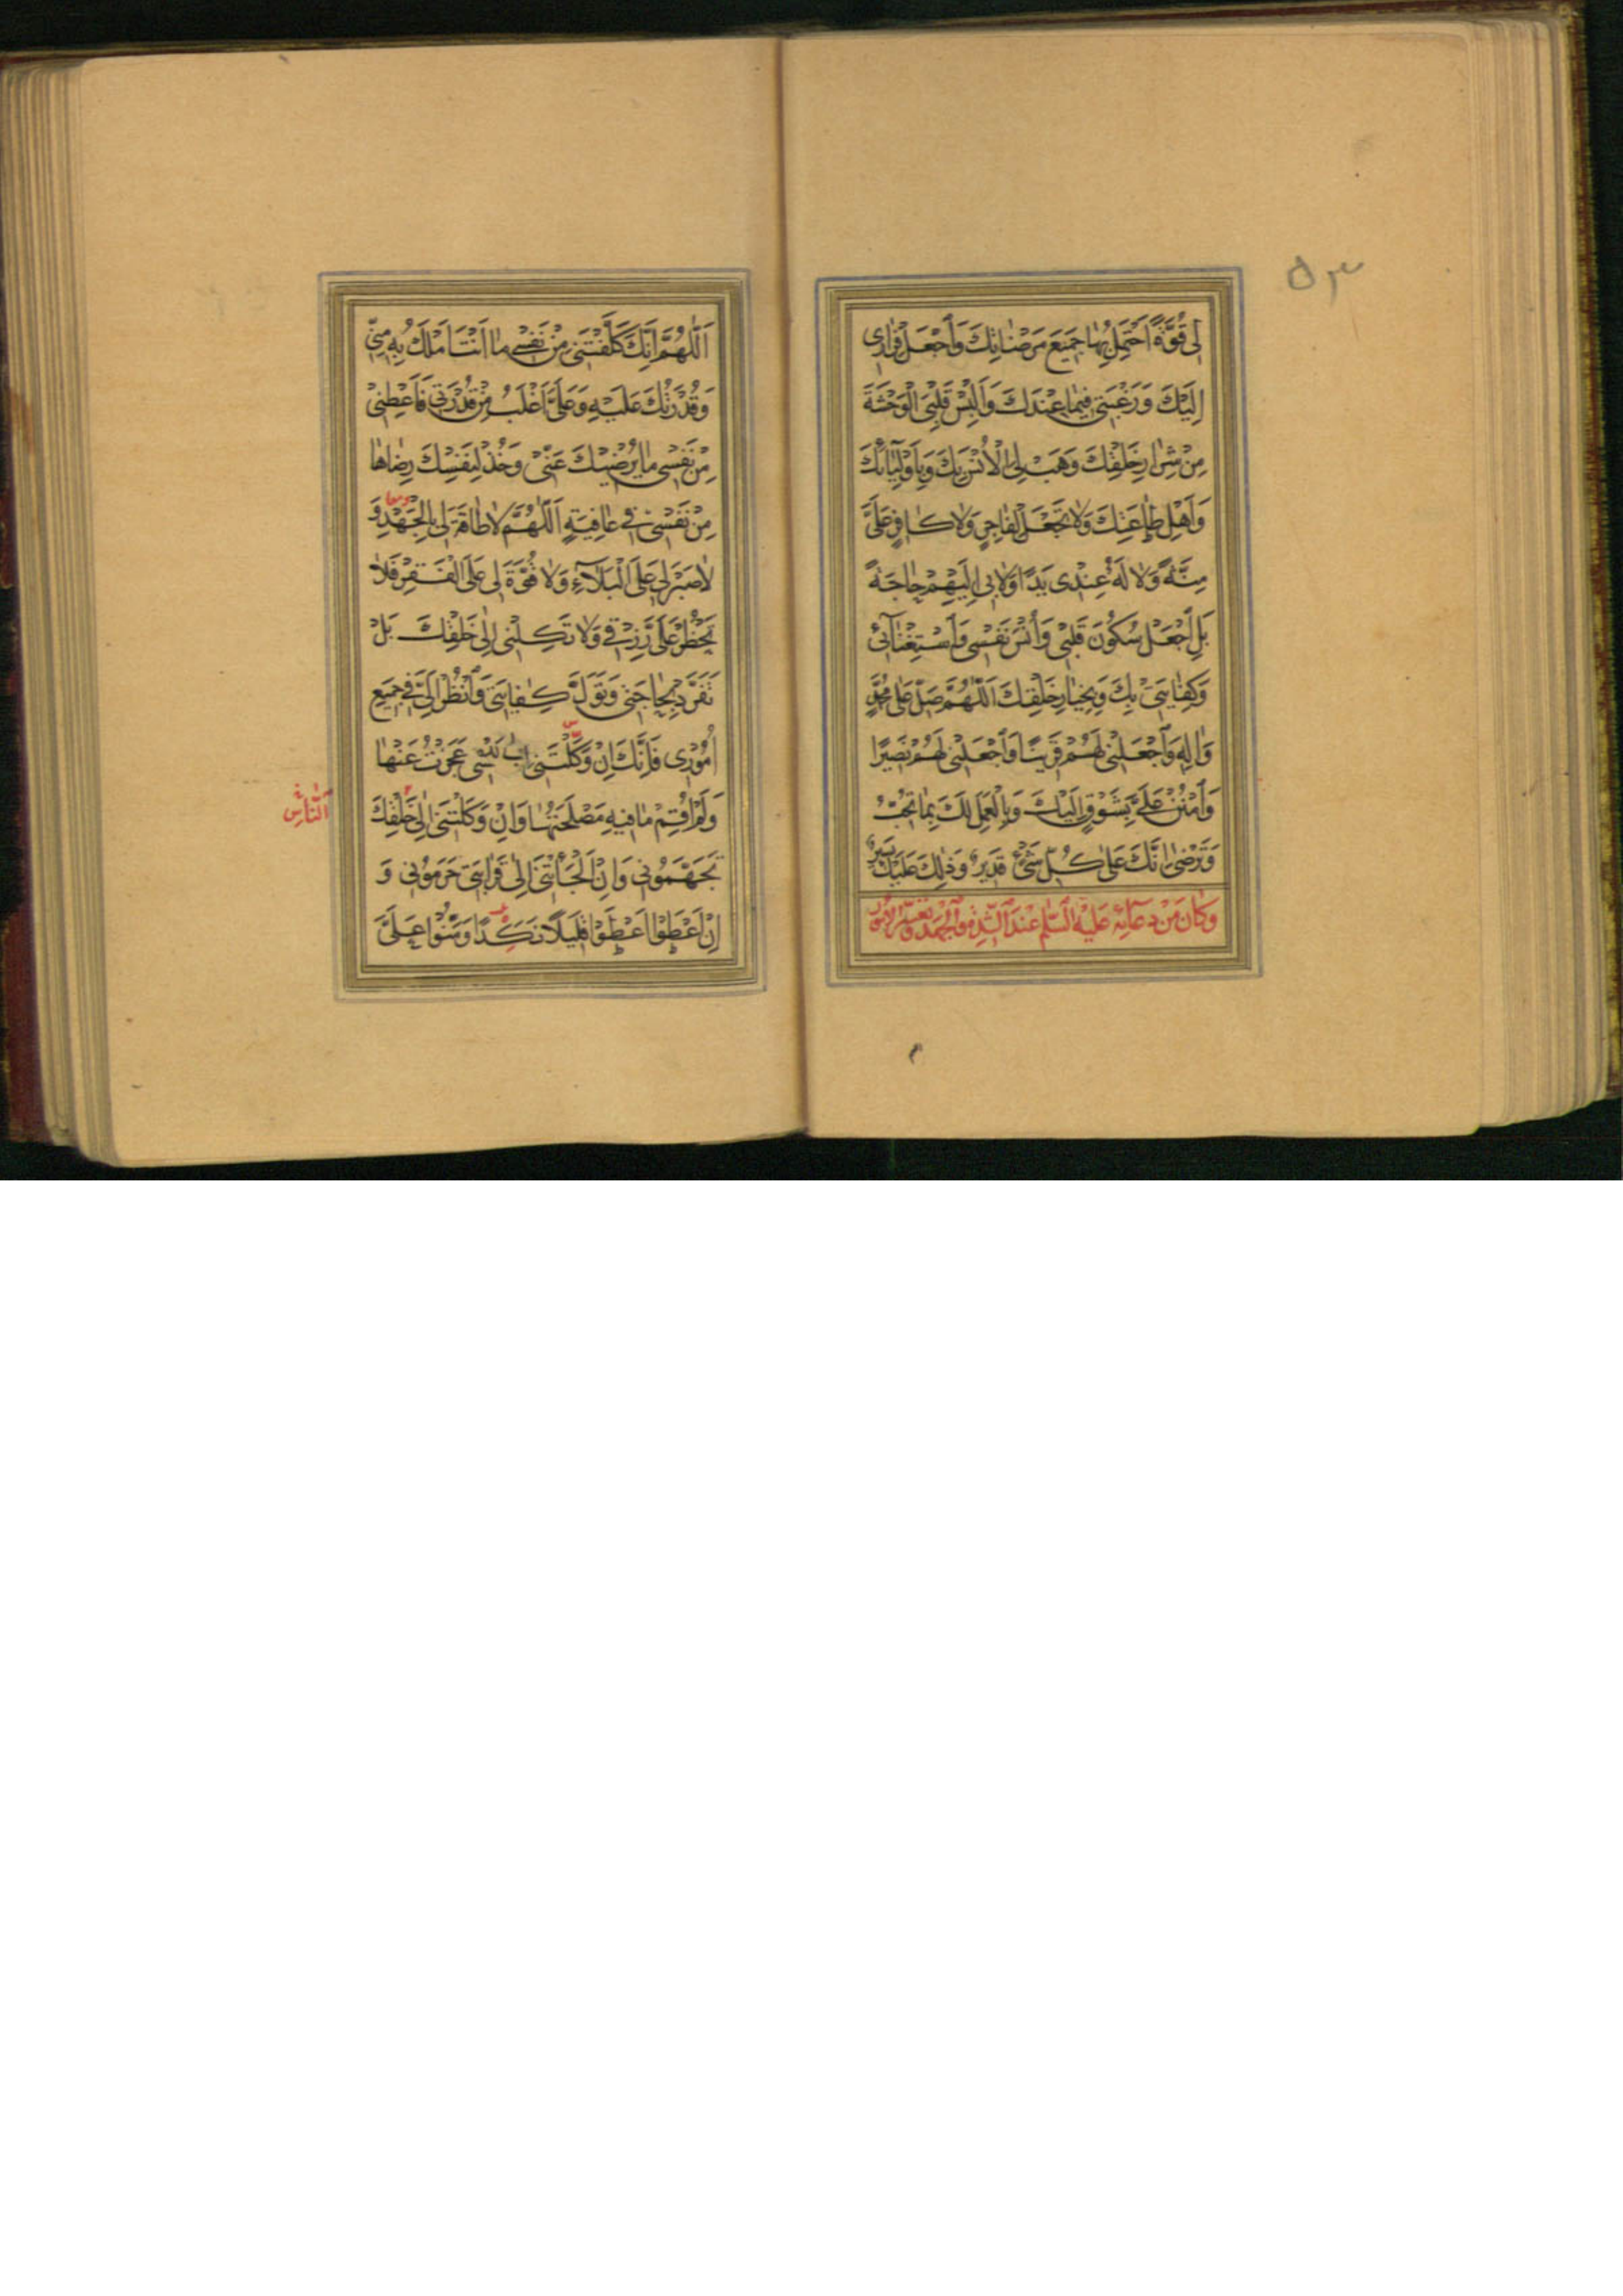 ۵۳
لى قُوَّةً اَحْتَمِلُ بِهٰا جَميعَ مَرْضٰاتِكَ وَاجْعَلْ فِرٰارى
اِلَيْكَ وَرَغْبَتى فيمٰا عِنْدَكَ وَاَلْبِسْ قَلْبِىَ الْوَحْشَةَ
مِنْ شِرٰارِ خَلْقِكَ وَهَبْ لِىَ الْاُنْسَ بِكَ وَبِاَوْلِيٰآئِكَ
وَاَهْلِ طٰاعَتِكَ وَلٰا تَجْعَلْ لِفٰاجِرٍ وَلٰا كٰافِرٍ عَلَىَّ
مِنَّةً وَلٰا لَهُ عِنْدى يَدًا وَلٰا بى اِلَيْهِمْ حٰاجَةً
بَلِ اجْعَلْ سُكُونَ قَلْبى وَاُنْسَ نَفْسى وَاسْتِغْنٰآئى
وَكِفٰايَتى بِكَ وَبِخِيٰارِ خَلْقِكَ اَللّٰهُمَّ صَلِّ عَلىٰ مُحَمَّدٍ
وَاٰلِهِ وَاجْعَلْنى لَهُمْ قَرينًا وَاجْعَلْنى لَهُمْ نَصيرًا
وَامْنُنْ عَلَىَّ بِشَوْقٍ اِلَيْكَ وَبِالْعَمَلِ لَكَ بِمٰا تُحِبُّ
وَتَرْضىٰ اِنَّكَ عَلىٰ كُلِّ شَىْءٍ قَديرٌ وَذٰلِكَ عَلَيْكَ يَسيرٌ
وَكٰانَ مِنْ دُعٰآئِهِ عَلَيْهِ السَّلٰمُ عِنْدَ الشِّدَّةِ وَالْجَهْدِ وَتَعَسُّرِ الْاُمُورِ
اَللّٰهُمَّ اِنَّكَ كَلَّفْتَنى مِنْ نَفْسى مٰا اَنْتَ اَمْلَكُ بِهِ مِنّى
وَقُدْرَتُكَ عَلَيْهِ وَعَلَىَّ اَغْلَبُ مِنْ قُدْرَتى فَاَعْطِنى
مِنْ نَفْسى مٰا يُرْضيكَ عَنّى وَخُذْ لِنَفْسِكَ رِضٰاهٰا
مِنْ نَفْسى فى عٰافِيَةٍ اَللّٰهُمَّ لٰا طٰاقَةَ لى بِالْجَهْدِ وَ
لٰا صَبْرَ لى عَلَى الْبَلٰآءِ وَلٰا قُوَّةَ لى عَلَى الْفَقْرِ فَلٰا
تَحْظُرْ عَلَىَّ رِزْقى وَلٰا تَكِلْنى اِلىٰ خَلْقِكَ بَلْ
تَفَرَّدْ بِحٰاجَتى وَتَوَلَّ كِفٰايَتى وَانْظُرْ اِلَىَّ فى جَميعِ
اُمُورى فَاِنَّكَ اِنْ وَكَلْتَنى اِلىٰ نَفْسى عَجَزْتُ عَنْهٰا
وَلَمْ اُقِمْ مٰا فيهِ مَصْلَحَتُهٰا وَاِنْ وَكَلْتَنى اِلىٰ خَلْقِكَ
النّٰاسِ
تَجَهَّمُونى وَاِنْ اَلْجَأْتَنى اِلىٰ قَرٰابَتى حَرَمُونى وَ
اِنْ اَعْطَوْا اَعْطَوْا قَليلًا نَكِدًا وَمَنُّوا عَلَىَّ